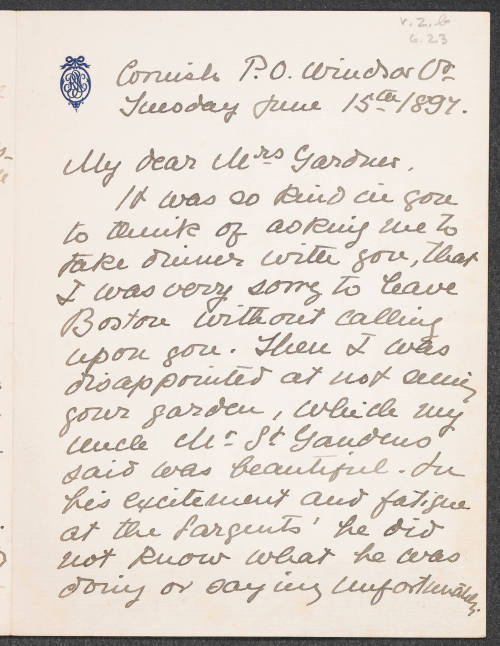 v. 2. b
6.23
Cornish P.O. Windsor Vt.
Tuesday June 15th 1897.
My dear Mrs Gardner,
It was so kind in you
to think of asking me to
take dinner with you, that
I was very sorry to leave
Boston without calling
upon you. Then I was
disappointed at not seeing
your garden, which my
uncle Mr St Gaudens
said was beautiful. In
his excitement and fatigue
at the Sargents' he did
not know what he was
doing or saying unfortunately.